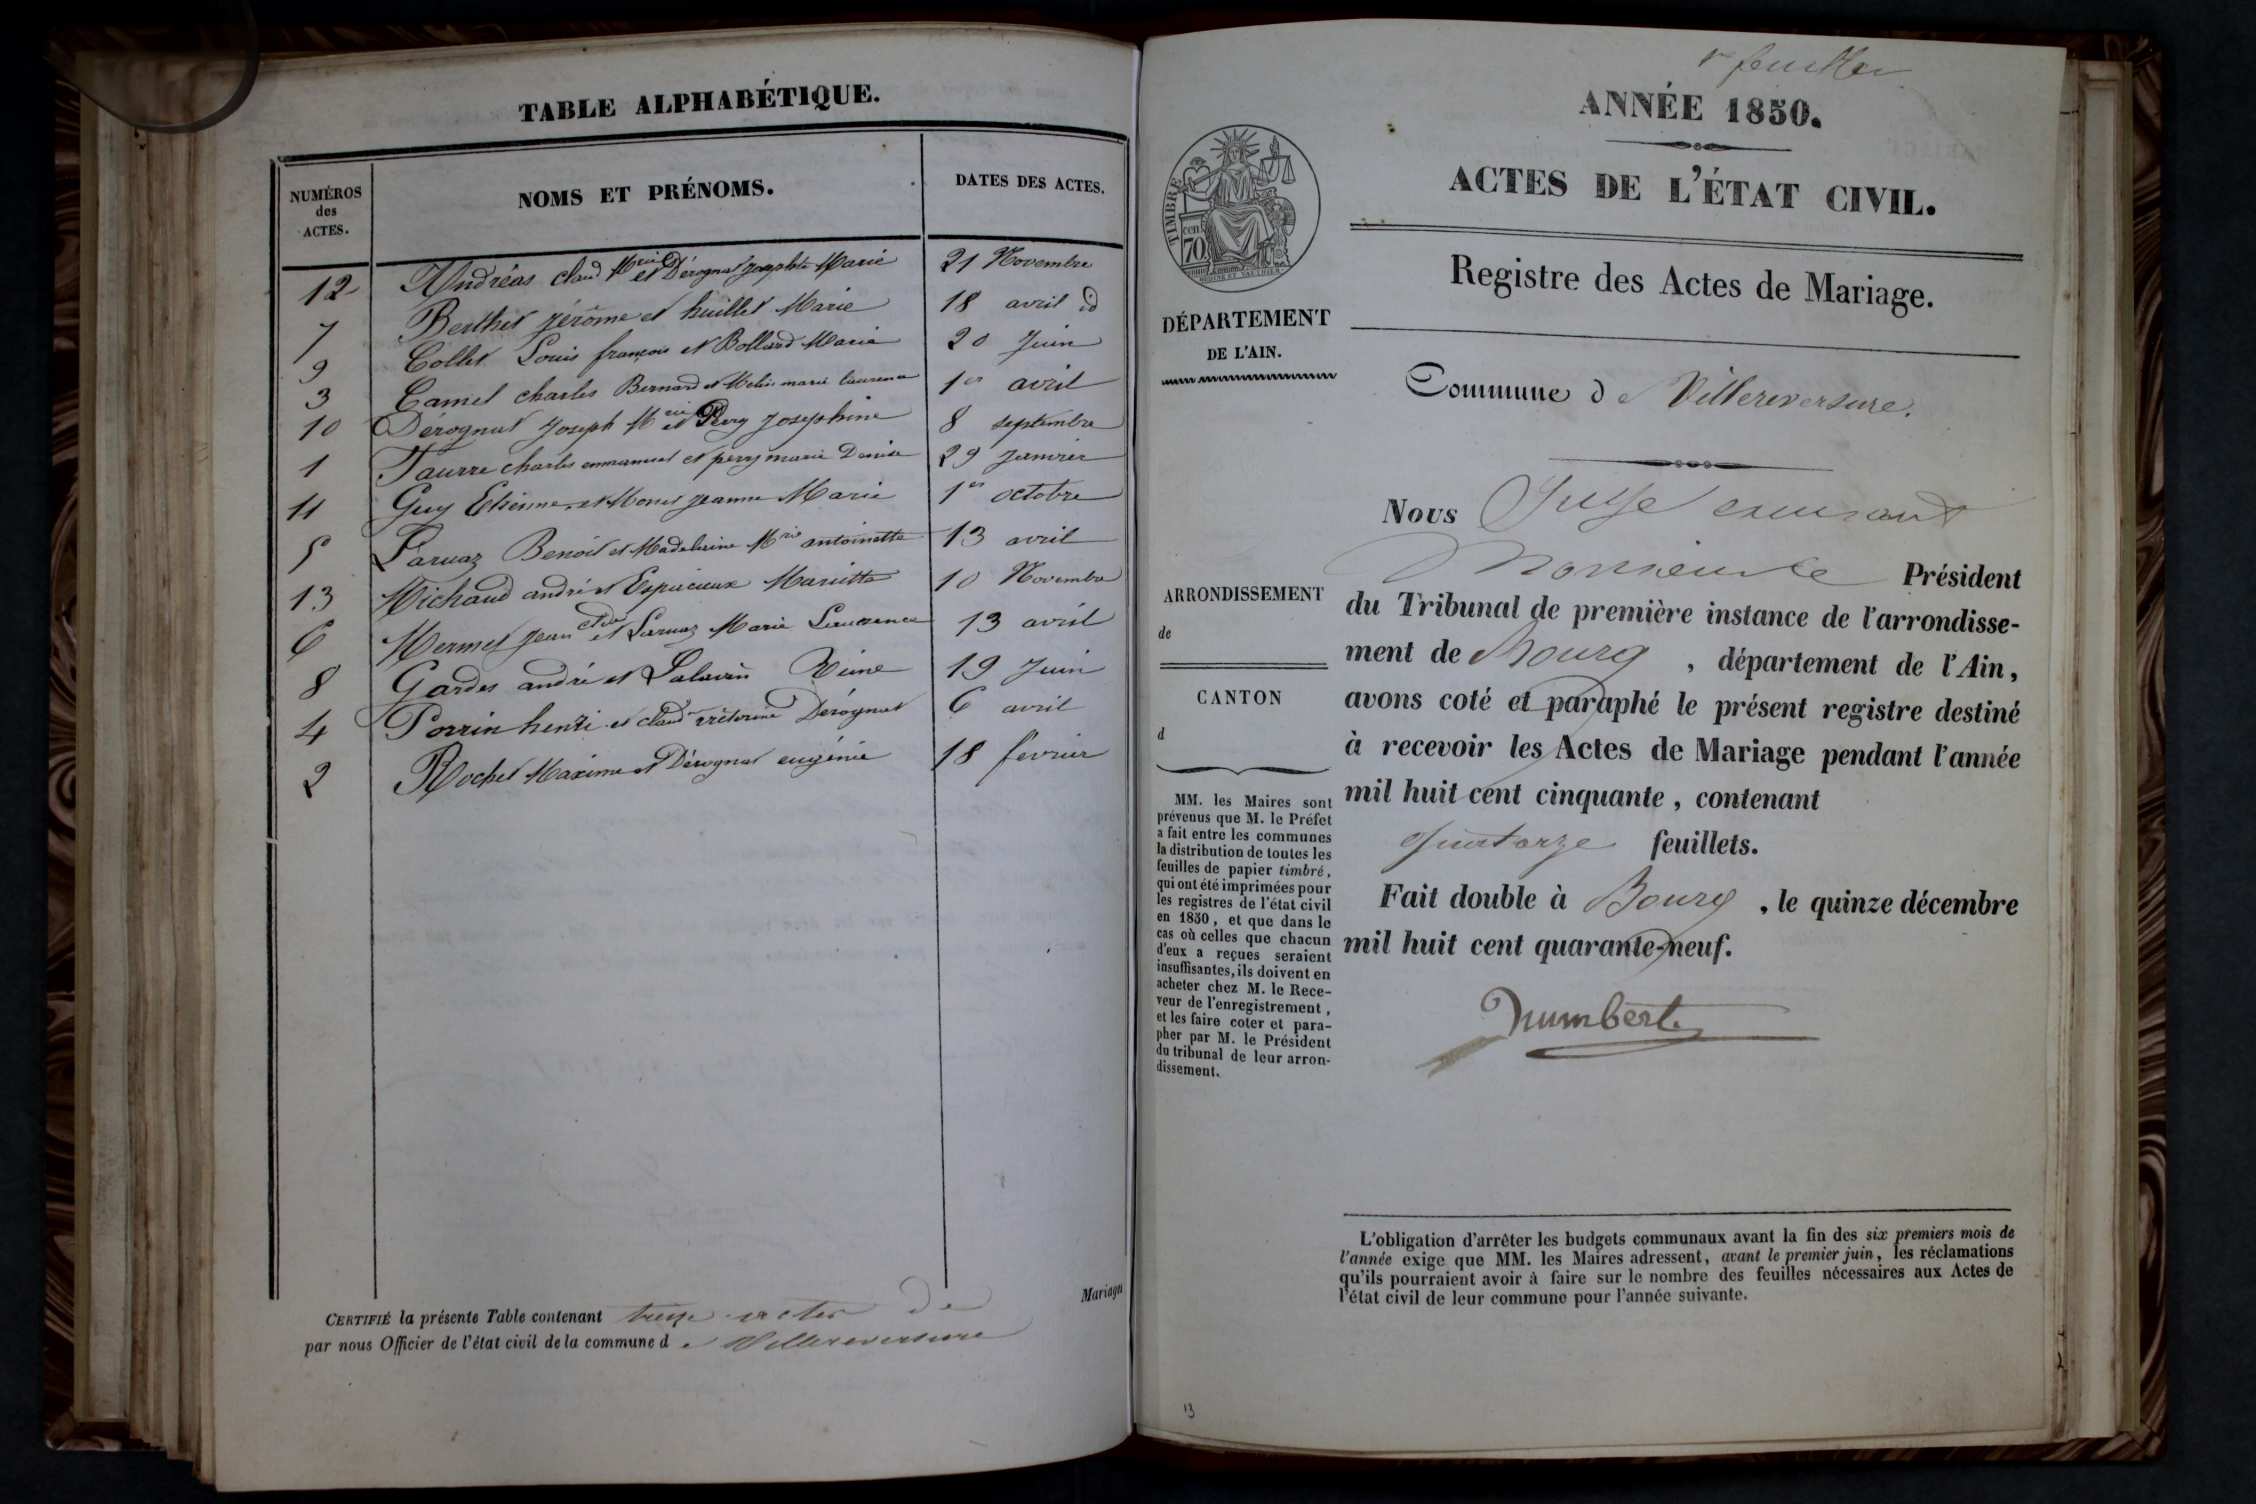 TABLE ALPHABÉTIQUE.
NUMÉROS des ACTES. NOMS ET PRÉNOMS. DATES DES ACTES.
12 Andréas claud Mrie et Dérognat josephte Marie 21 Novembre
7 Berthet jérôme et huillet Marie 18 avril id
9 Collet Louis françois et Bolland Marie 20 Juin
3 Camet charles Bernard et marie laurence 1er avril
10 Dérognat Joseph Mrie et Pery Josephine 8 septembre
1 Faurre charles emmanuel et pery marie Denise 29 Janvier
11 Guy Etienne et Monet jeanne Marie 1er octobre
5 Laruaz Benoit et Madeleine Mrie antoinette 13 avril
13 Michaud andré et Espicieux Mariette 10 Novembre
6 Mermet jean et Laruaz Marie Laurence 13 avril
8 Gardes andré et Reine 19 Juin
4 Porrin henri et claud victorine Dérognat 6 avril
2 Rochet Maxime et Dérognat eugénie 18 fevrier
CERTIFIÉ la présente Table contenant treize actes de Mariage
par nous Officier de l'état civil de la commune d e Villereversure
1er feuillet
ANNÉE 1850.
ACTES DE L'ÉTAT CIVIL.
Registre des Actes de Mariage.
TIMBRE
cen
70
DÉPARTEMENT
DE L'AIN.
ARRONDISSEMENT
de
CANTON
d
MM. les Maires sont
prévenus que M. le Préfet
a fait entre les communes
la distribution de toutes les
feuilles de papier timbré,
qui ont été imprimées pour
les registres de l'état civil
en 1850, et que dans le
cas où celles que chacun
d'eux a reçues seraient
insuffisantes, ils doivent en
acheter chez M. le Rece-
veur de l'enregistrement,
et les faire coter et para-
pher par M. le Président
du tribunal de leur arron-
dissement.
Commune d e Villereversure.
Nous Juge
Monsieur le Président
du Tribunal de première instance de l'arrondisse-
ment de Bourg, département de l'Ain,
avons coté et paraphé le présent registre destiné
à recevoir les Actes de Mariage pendant l'année
mil huit cent cinquante, contenant
quatorze feuillets.
Fait double à Bourg, le quinze décembre
mil huit cent quarante-neuf.
humbert
L'obligation d'arrêter les budgets communaux avant la fin des six premiers mois de
l'année exige que MM. les Maires adressent, avant le premier juin, les réclamations
qu'ils pourraient avoir à faire sur le nombre des feuilles nécessaires aux Actes de
l'état civil de leur commune pour l'année suivante.
13